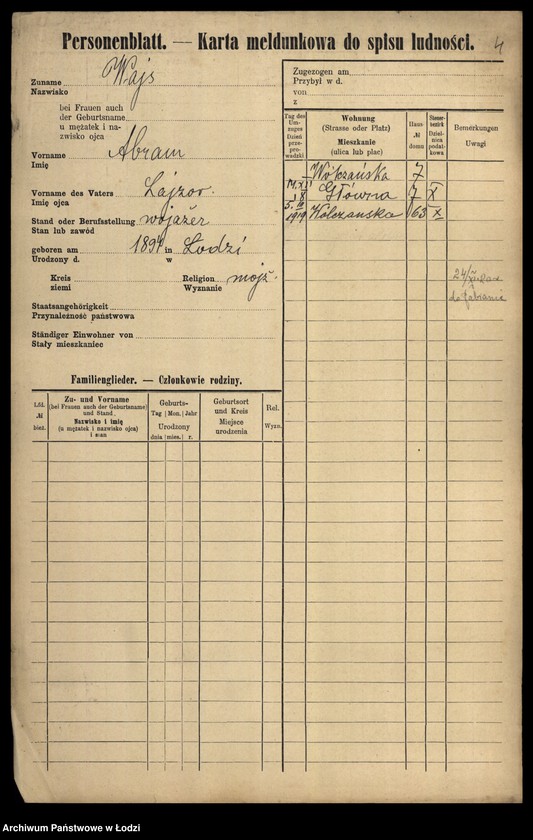 Personenblatt. — Karta meldunkowa do spisu ludności. 4
Zuname Wajs
Nazwisko
bei Frauen auch
der Geburtsname
u mężatek i na-
zwisko ojca
Vorname Abram
Imię
Vorname des Vaters Lajzor
Imię ojca
Stand oder Berufsstellung wojażer
Stan lub zawód
geboren am 1894 in Łodzi
Urodzony d. w
Kreis Religion mojż.
ziemi Wyznanie
Staatsangehörigkeit
Przynależność państwowa
Ständiger Einwohner von
Stały mieszkaniec
Familienglieder. — Członkowie rodziny.
Lfd. № bież.
Zu- und Vorname
(bei Frauen auch der Geburtsname)
und Stand.
Nazwisko i imię
(u mężatek i nazwisko ojca)
i stan
Geburts-
Tag Mon. Jahr
Urodzony
dnia mies. r.
Geburtsort
und Kreis
Miejsce
urodzenia
Rel.
Wyzn.
Zugezogen am
Przybył w d.
von
z
Tag des
Um-
zuges
Dzień
prze-
prowadzki
Wohnung
(Strasse oder Platz)
Mieszkanie
(ulica lub plac)
Haus-
№
domu
Steuer-
bezirk
Dziel-
nica
podat-
kowa
Bemerkungen
Uwagi
— Wólczańska 7
Główna 7 X
5. 1919 Wólczańska 63 X
24/
Archiwum Państwowe w Łodzi